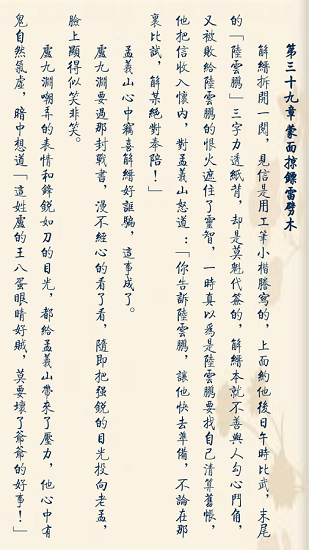 第三十九章蒙面掠鏢雷劈木
解縉拆開一閱，見信是用工筆小楷謄寫的，上面約他後日午時比武，末尾
的「陸雲鵬」三字力透紙背，却是莫魁代簽的，解縉本就不善與人勾心鬥角，
又被敗給陸雲鵬的恨火遮住了靈智，一時真以爲是陸雲鵬要找自己清算舊帳，
他把信收入懷內，對孟義山怒道：「你告訴陸雲鵬，讓他快去準備，不論在那
裏比試，解某絕對奉陪！」
孟義山心中竊喜解縉好誆騙，這事成了。
盧九淵要過那封戰書，漫不經心的看了看，隨即把强鋭的目光投向老孟，
臉上顯得似笑非笑。
盧九淵嘲弄的表情和鋒鋭如刀的目光，都給孟義山帶來了壓力，他心中有
鬼自然氣虛，暗中想道「這姓盧的王八蛋眼睛好賊，莫要壞了爺爺的好事！」